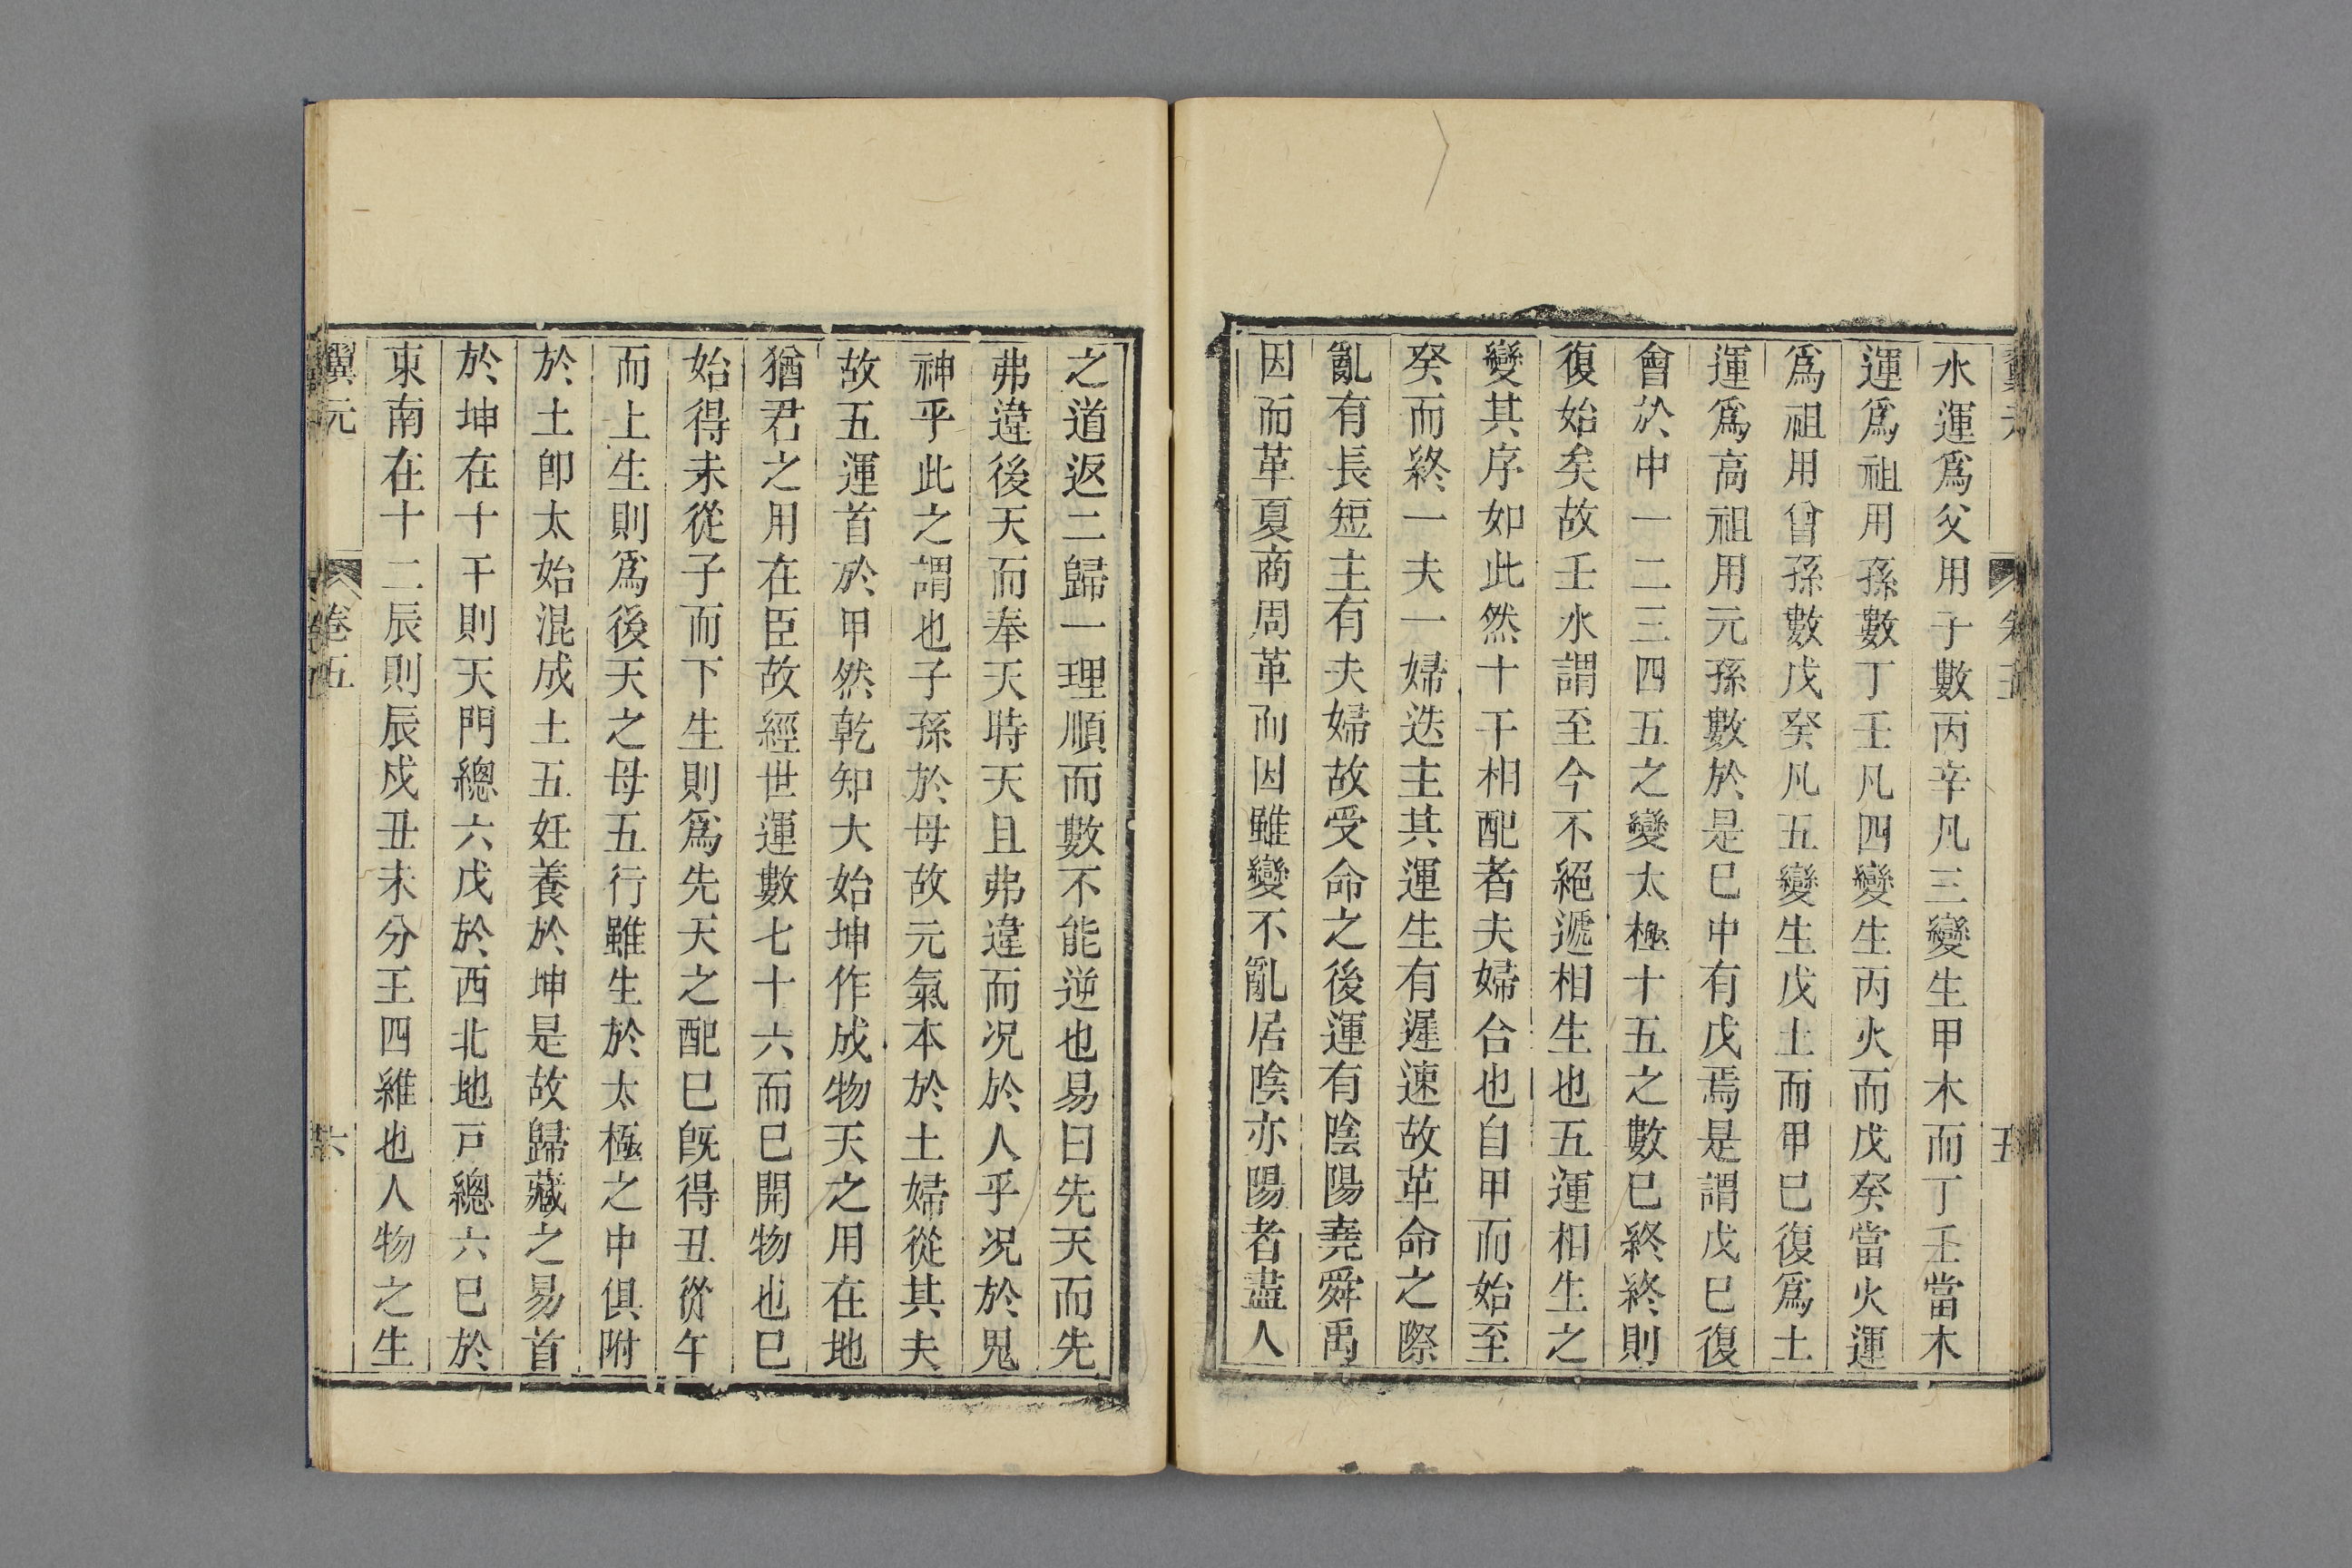 水運爲父用子數丙辛凡三變生甲木而丁壬當木
運爲祖用孫數丁壬凡四變生丙火而戊癸當火運
爲祖用曾孫數戊癸凡五變生戊土而甲巳復爲土
運爲高祖用元孫數於是巳中有戊焉是謂戊巳復
會於中一二三四五之變太極十五之數巳終終則
復始矣故壬水謂至今不絕遞相生也五運相生之
變其序如此然十干相配者夫婦合也自甲而始至
癸而終一夫一婦迭主其運生有遲速故革命之際
亂有長短主有夫婦故受命之後運有陰陽堯舜禹
因而革夏商周革而因雖變不亂居陰亦陽者盡人
之道返二歸一理順而數不能逆也易曰先天而先
弗違後天而奉天時天且弗違而况於人乎况於鬼
神乎此之謂也子孫於母故元氣本於土婦從其夫
故五運首於甲然乾知大始坤作成物天之用在地
猶君之用在臣故經世運數七十六而巳開物也巳
始得未從子而下生則爲先天之配巳旣得丑從午
而上生則爲後天之母五行雖生於太極之中俱附
於土卽太始混成土五妊養於坤是故歸藏之易首
於坤在十干則天門總六戊於西北地戸總六巳於
東南在十二辰則辰戌丑未分王四維也人物之生
翼元 卷五 六